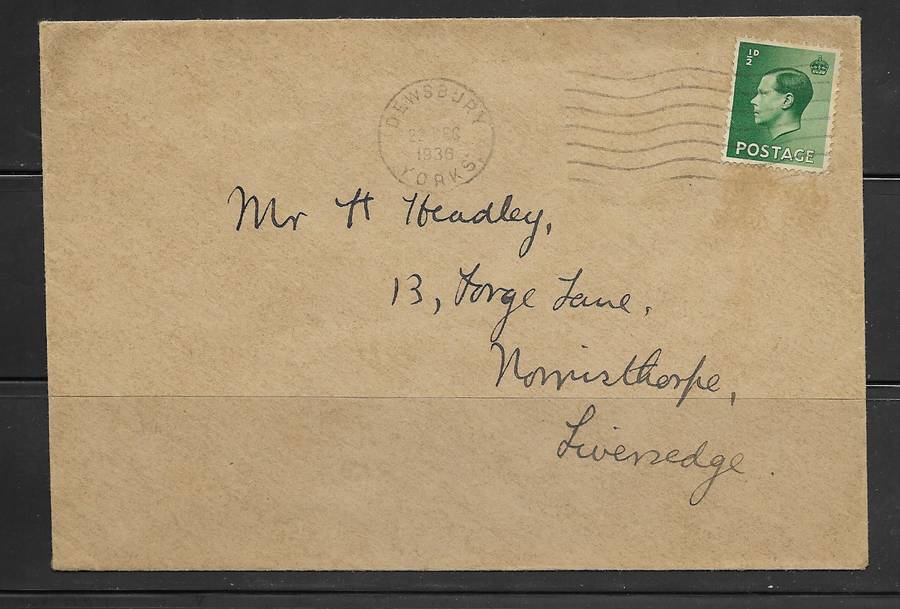 ½D
POSTAGE
DEWSBURY
22 DEC
1936
YORKS.
Mr H Headley,
13, Forge Lane.
Norristhorpe,
Liversedge.